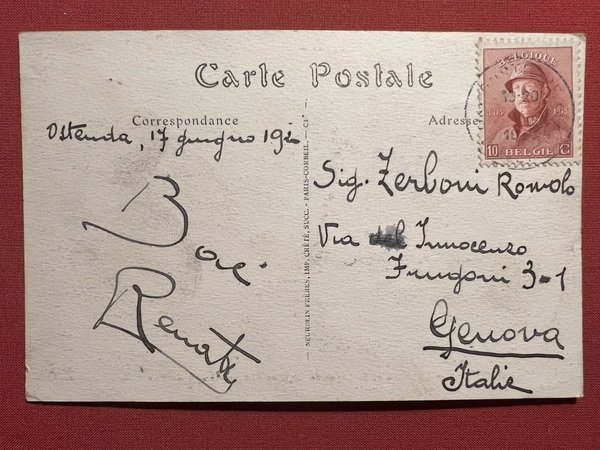 Carte Postale
Correspondance
Adresse
Ostenda, 17 giugno 1920
Baci
Renata
NEURDEIN FRÈRES, IMP. CRÉTÉ, SUCC. - PARIS-CORBEIL. — Cie
BELGIQUE
10 C
BELGIË
Sig. Zerboni Romolo
Via Innocenzo
Frugoni 3-1
Genova
Italie